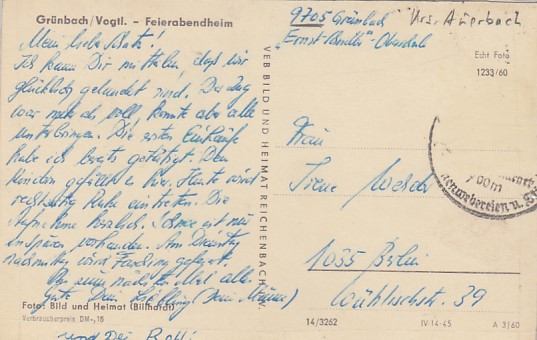 Grünbach/Vogtl. - Feierabendheim
Mein liebe
Ich kann Dir mitteilen, daß wir
glücklich gelandet sind. Der Zug
war mehr als voll, konnte aber alle
unterbringen. Die ersten Einkäufe
habe ich bereits getätigt. Den
Kindern gefällt es hier. Heute wird
Ruhe eintreten. Die
Aufnahme herzlich. Schnee ist nur
in Spuren vorhanden. Am Dienstag
nachmittag wird Fasching gefeiert.
Bis zum nächsten Mal alles
Gute Dein
Foto: Bild und Heimat (Billhardt)
Verbraucherpreis DM -,15
und Dei
VEB BILD UND HEIMAT REICHENBACH i. V.
9705 Grünbach Krs. Auerbach
"Ernst-Schneller"-Oberschule
Echt Foto
1233/60
Frau
Irene
1035 Berlin
Wühlischstr. 39
14/3262
IV-14-45
A 3/60